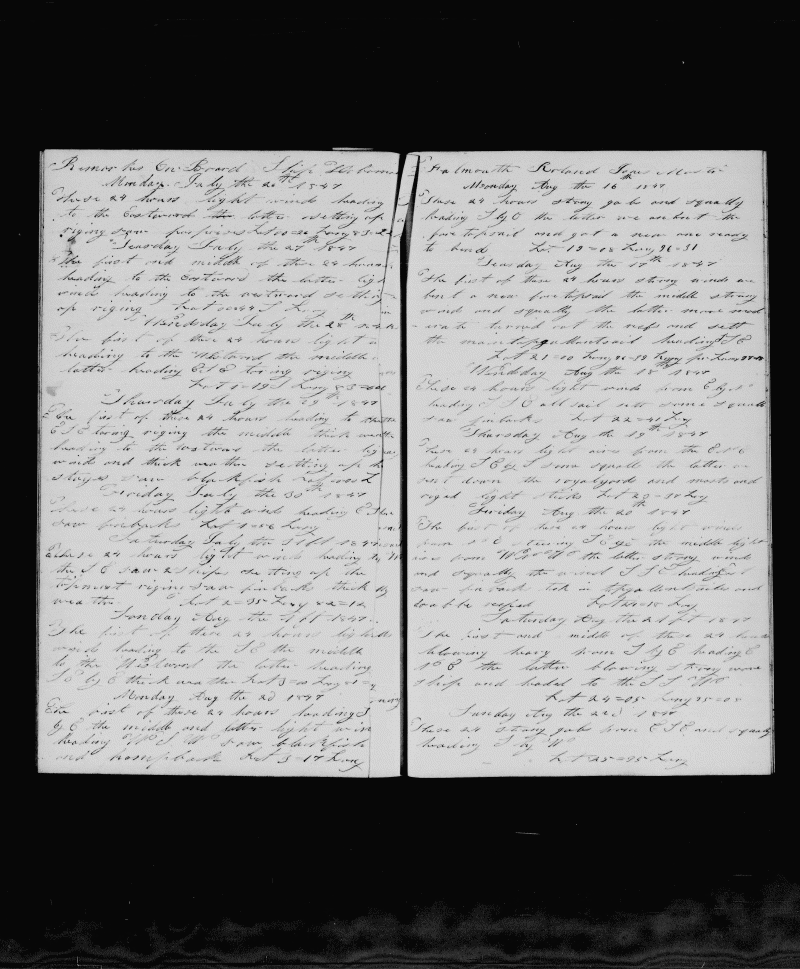 Remarks On Board Ship
Monday July the 26th 1847
These 24 hours light winds heading
to the Eastward the latter setting up
riging saw porpoises Lat 00=20 Long 83=2
Teasday July the 27th 1847
The first and middle of these 24 hours
heading to the Eastward the latter ligh
wind heading to the westward setting
up riging Lat 00=44 S Long
Wendsday July the 28th
The first of these 24 hours light
heading to the Westward the middle
latter heading E S E toring riging
Lat 1=19 S Long 83=00
Thursday July the 29th 1847
The first of these 24 hours heading to
E S E toring riging the middle thick weathe
heading to the Eastward the latter lig
wind and thick weather setting up the
stays saw blackfish Lat
Friday July the 30th 1847
These 24 hours light winds heading E
saw finbacks Lat 1=56 Long
Saturday July the 31st 1847
These 24 hours light winds heading by
the S E saw 2 ships setting up the
topmast riging saw finbacks thick
weather Lat 2=35 Long 82=12
Sonday Aug the 1st 1847
The first of these 24 hours light
winds heading to the S E the middle
to the Westward the latter heading
S E by E thick weather Lat 3=0 Long 81=
Monday Aug the 2d 1847
The first of these 24 hours heading S
by E the middle and latter light win
heading W S W saw blackfish
and humpback Lat 3=17 Long
Falmouth Master
Monday Aug the 16th 1847
These 24 hours strong gals and squally
heading S by E the latter we unbent the
fortopsail and got a new one ready
to bend Lat 19=08 Long 96=31
Teasday Aug the 17th 1847
The first of these 24 hours strong winds we
bent a new fortopsail the middle strong
wind and squally the latter more mod
erate turned out the reefs and sett
the maintopgallantsail heading S E
Lat 21=00 Long
Wendsday Aug the 18th 1847
These 24 hours light winds from E by N
heading S S E all sail sett some squalls
saw finbacks Lat 22=41 Long
Thursday Aug the 19th 1847
These 24 hours light airs from the E N E
heading S E by S some squalls the latter we
sent down the royalyards and masts and
riged light sticks Lat 23=31 Long
Friday Aug the 20th 1847
The first of these 24 hours light winds
from N E stearing S E by E the middle light
airs from the latter strong winds
and squally the wind S S E heading
saw finback tok in topgallantsails and
double reefed Lat 24=18 Long
Saturday Aug the 21st 1847
The first and middle of these 24 hours
blowing heavy from S by E heading E
N E the latter blowing strong wore
ship and headed to the S S W
Lat 24=05 Long 95=05
Sunday Aug the 22d 1847
These 24 strong gals from E S E and squaly
heading S by W
Lat 25=35 Long